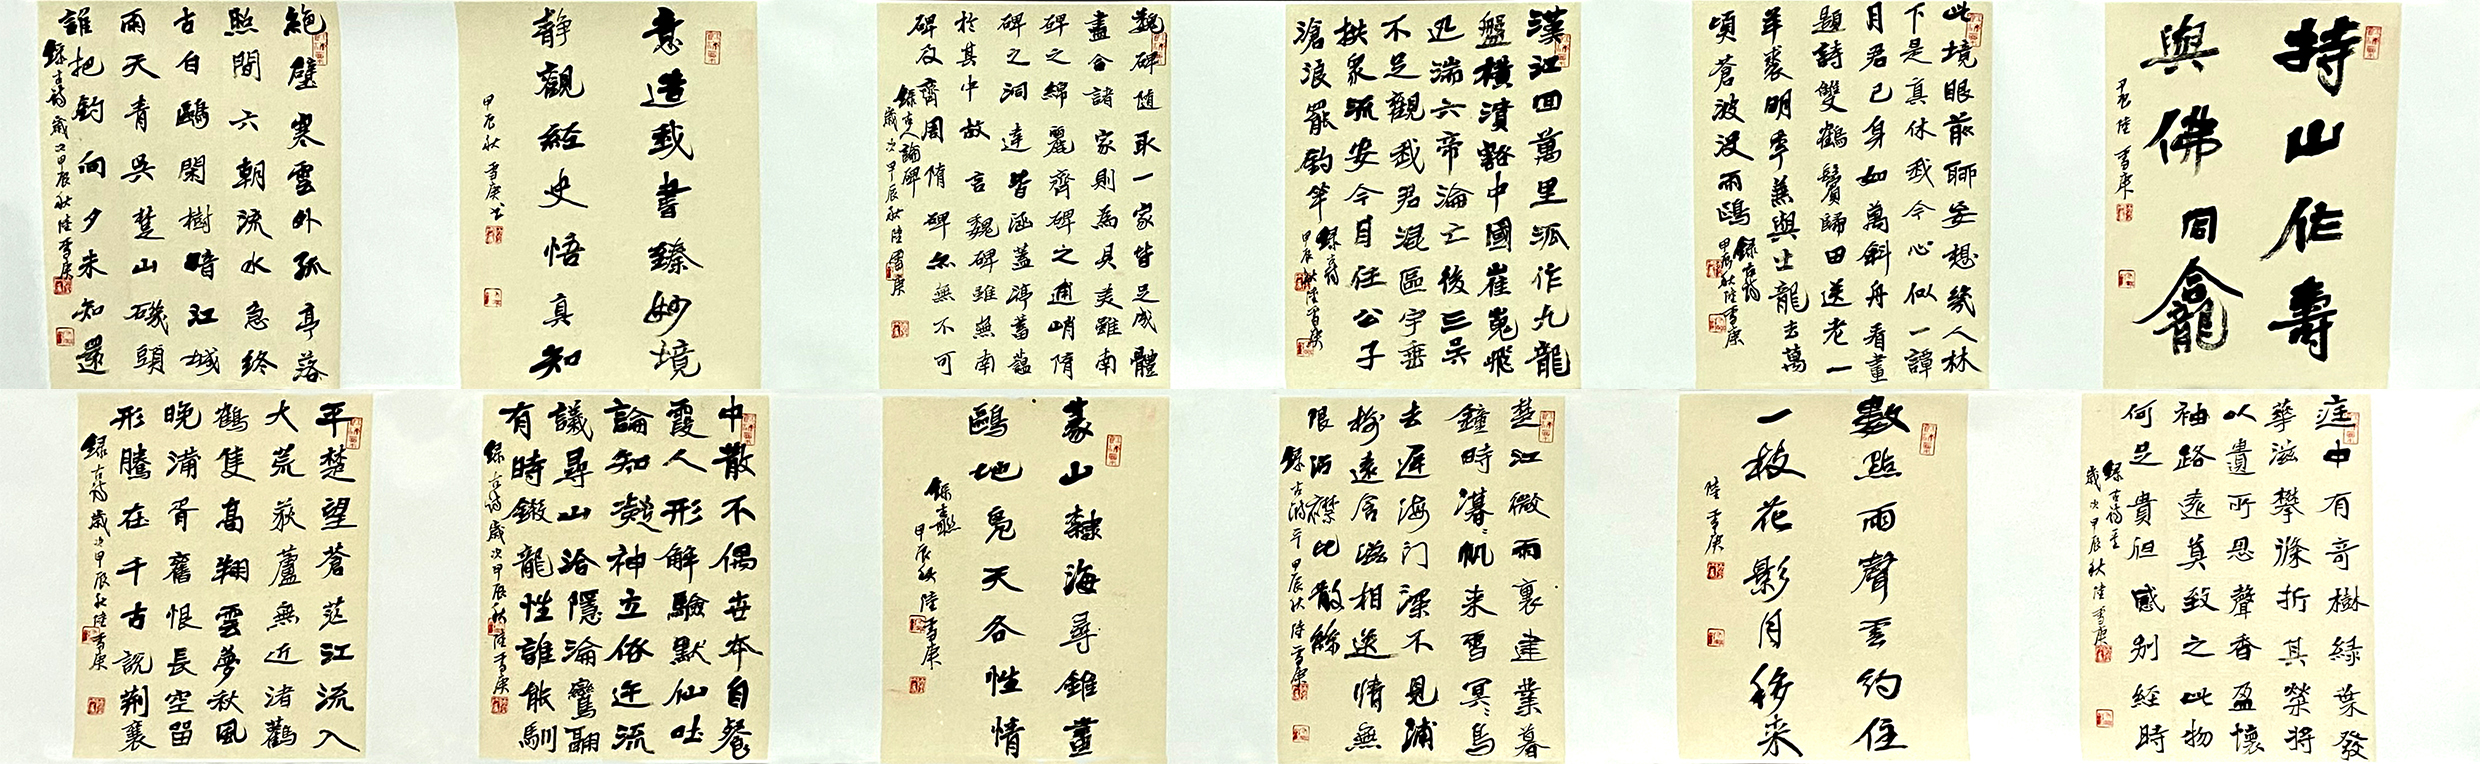 持山作壽
與佛同龕
甲辰陸雪庚
此境眼前聊妄想幾人林
下是真休我今心似一譚
月君已身如萬斛舟看畫
題詩雙鶴鬢歸田送老一
羊裘明年兼與士龍去萬
頃蒼波没兩鷗
錄古詩
甲辰秋陸雪庚
漢江回萬里派作九龍
盤橫潰豁中國崔嵬飛
迅湍六帝淪亡後三吳
不足觀我君混區宇垂
拱衆流安今日任公子
滄浪罷釣竿
錄古詩
甲辰秋陸雪庚
魏碑隨取一家皆足成體
盡合諸家則為具美雖南
碑之綿麗齊碑之逋峭隋
碑之洞達皆涵蓋渟蓄蘊
於其中故言魏碑雖無南
碑及齊周隋碑亦無不可
錄古人論碑
歲次甲辰秋陸雪庚
意造我書臻妙境
靜觀經史悟真知
甲辰秋雪庚书
絕壁寒雲外孤亭落
照間六朝流水急終
古白鷗閑樹暗江城
雨天青吳楚山磯頭
誰把釣向夕未知還
錄古詩歲次甲辰秋陸雪庚
庭中有奇樹緑葉發
華滋攀條折其榮將
以遺所思馨香盈懷
袖路遠莫致之此物
何足貴但感别經時
錄古詩
歲次甲辰秋陸雪庚
數點雨聲雲約住
一枝花影月移来
陸雪庚
篆山隸海尋錐畫
鷗地鳧天各性情
錄
甲辰秋陸雪庚
楚江微雨裏建業暮
鐘時漠漠帆来重冥冥鳥
去遲海门深不見浦
樹遠含滋相送情無
限沾襟比散絲
錄古詩
甲辰秋陸雪庚
中散不偶世本自餐
霞人形解驗默仙吐
論知凝神立俗迕流
議尋山洽隱淪鸞翮
有時鎩龍性誰能馴
錄古詩歲次甲辰秋陸雪庚
平楚望蒼茫江流入
大荒荻蘆無近渚鸛
鶴隻高翔雲夢秋風
晚浦胥舊恨長空留
形勝在千古説荆襄
錄古詩歲次甲辰秋陸雪庚